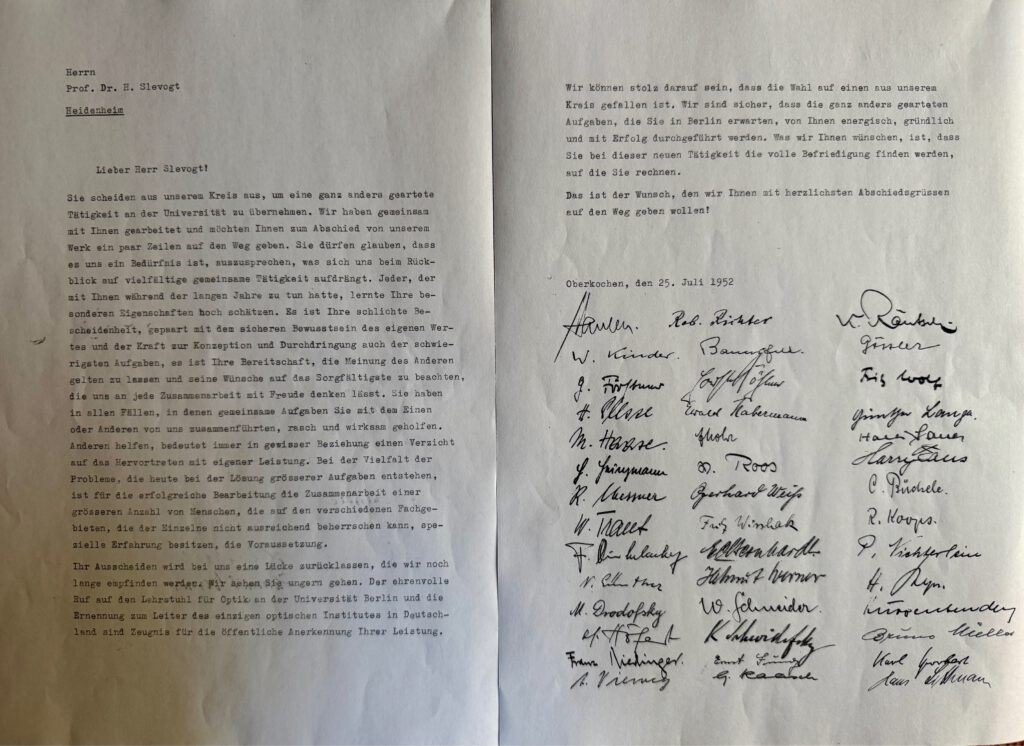 Herrn
Prof. Dr. H. Slevogt
Heidenheim
Lieber Herr Slevogt!
Sie scheiden aus unserem Kreis aus, um eine ganz anders geartete
Tätigkeit an der Universität zu übernehmen. Wir haben gemeinsam
mit Ihnen gearbeitet und möchten Ihnen zum Abschied von unserem
Werk ein paar Zeilen auf den Weg geben. Sie dürfen glauben, dass
es uns ein Bedürfnis ist, auszusprechen, was sich uns beim Rück-
blick auf vielfältige gemeinsame Tätigkeit aufdrängt. Jeder, der
mit Ihnen während der langen Jahre zu tun hatte, lernte Ihre be-
sonderen Eigenschaften hoch schätzen. Es ist Ihre schlichte Be-
scheidenheit, gepaart mit dem sicheren Bewusstsein des eigenen Wer-
tes und der Kraft zur Konzeption und Durchdringung auch der schwie-
rigsten Aufgaben, es ist Ihre Bereitschaft, die Meinung des Anderen
gelten zu lassen und seine Wünsche auf das Sorgfältigste zu beachten,
die uns an jede Zusammenarbeit mit Freude denken lässt. Sie haben
in allen Fällen, in denen gemeinsame Aufgaben Sie mit dem Einen
oder Anderen von uns zusammenführten, rasch und wirksam geholfen.
Anderen helfen, bedeutet immer in gewisser Beziehung einen Verzicht
auf das Hervortreten mit eigener Leistung. Bei der Vielfalt der
Probleme, die heute bei der Lösung grösserer Aufgaben entstehen,
ist für die erfolgreiche Bearbeitung die Zusammenarbeit einer
grösseren Anzahl von Menschen, die auf den verschiedenen Fachge-
bieten, die der Einzelne nicht ausreichend beherrschen kann, spe-
zielle Erfahrung besitzen, die Voraussetzung.
Ihr Ausscheiden wird bei uns eine Lücke zurücklassen, die wir noch
lange empfinden werden. Wir sehen Sie ungern gehen. Der ehrenvolle
Ruf auf den Lehrstuhl für Optik an der Universität Berlin und die
Ernennung zum Leiter des einzigen optischen Institutes in Deutsch-
land sind Zeugnis für die öffentliche Anerkennung Ihrer Leistung.
Wir können stolz darauf sein, dass die Wahl auf einen aus unserem
Kreis gefallen ist. Wir sind sicher, dass die ganz anders gearteten
Aufgaben, die Sie in Berlin erwarten, von Ihnen energisch, gründlich
und mit Erfolg durchgeführt werden. Was wir Ihnen wünschen, ist, dass
Sie bei dieser neuen Tätigkeit die volle Befriedigung finden werden,
auf die Sie rechnen.
Das ist der Wunsch, den wir Ihnen mit herzlichsten Abschiedsgrüssen
auf den Weg geben wollen!
Oberkochen, den 25. Juli 1952
Rob. Richter
W. Kinder.
Gössler
G. Förstner
Fritz Wolf
Ewald Habermann
Günther Lange.
M. Haase.
Roos
R. Messner
Gerhard Weiß
C. Büchele.
W. Traut
R. Koops.
Helmut Werner
M. Drodofsky
W. Schneider.
K Schwidefsky
Bruno Müller
Franz
Ernst
Karl
A. Vierweg
G. Kaasch
Hans